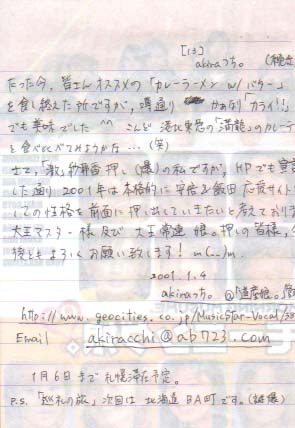 [13]
akiraっち。
たった今、皆さんオススメの「カレーラーメン w/ バター」
を食し終えた所ですが、噂通り かなり「カライ!!」
でも美味でした ^^ こんど 港北東急の「満龍」のカレーラ
と食べくらべてみようかな…(笑)
さて、「激」紗耶香押し(爆)の私ですが、HPでも宣
した通り 2001年は本格的に 安倍&飯田 応援サイト
しての性格を前面に押し出していきたいと考えており
大王マスター様 及び 大王常連 娘。押しの皆様、今
後ともよろしくお願い致します! m(_ _)m
2001.1.4
akiraっち。@「道産娘。」
http://www.geocities.co.jp/MusicStar-Vocal/
Email akiracchi@ab723.com
1月6日まで札幌滞在予定。
P.S. 「巡礼の旅」次回は 北海道 BA町です。(誤爆)